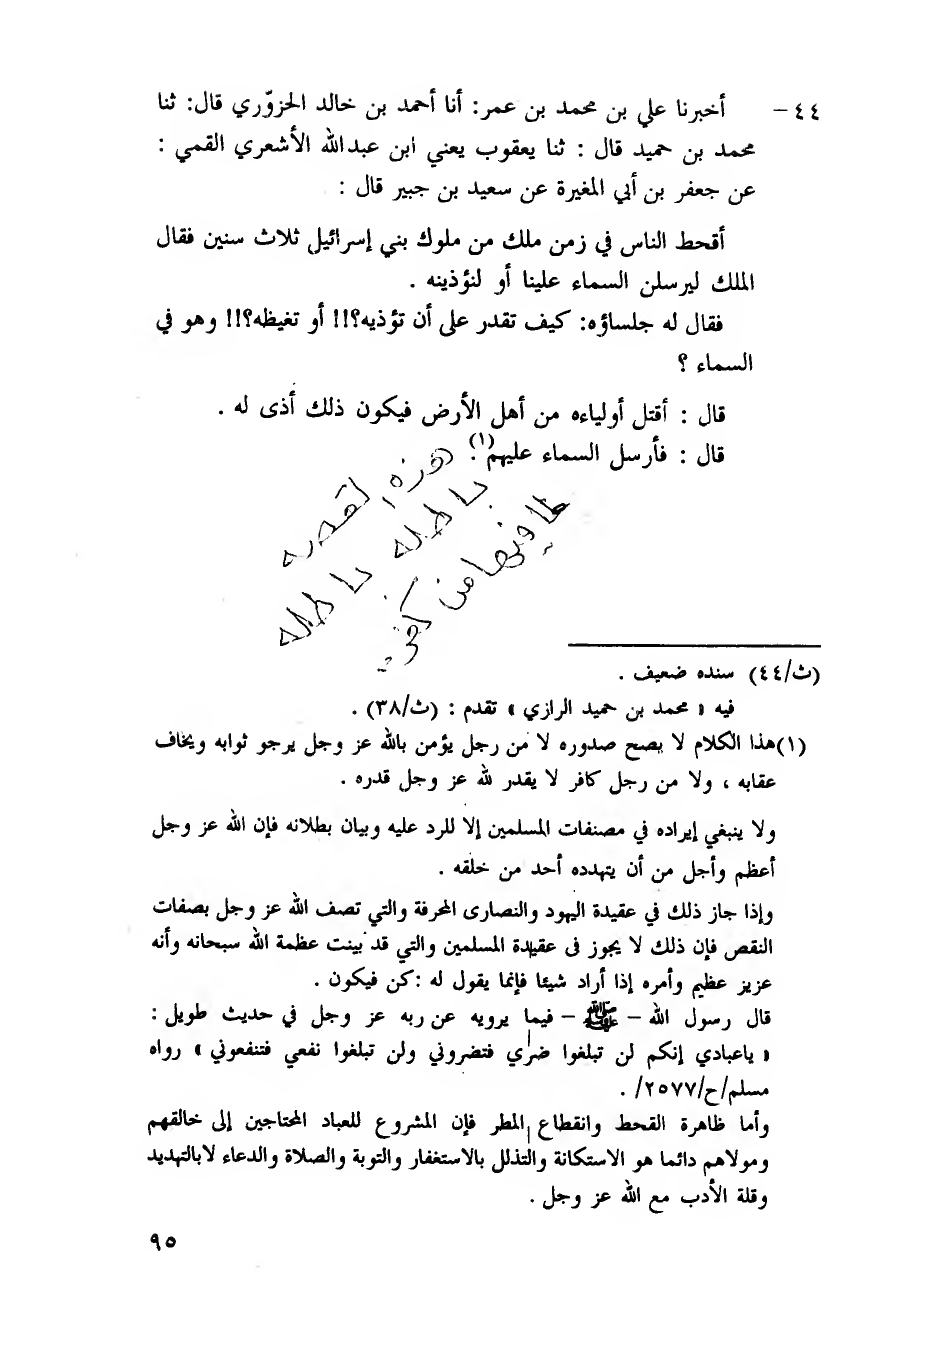 ٤٤ – أخبرنا علي بن محمد بن عمر: أنا أحمد بن خالد الحزوّري قال: ثنا
محمد بن حميد قال : ثنا يعقوب يعني ابن عبدالله الأشعري القمي :
عن جعفر بن أبي المغيرة عن سعيد بن جبير قال :
أقحط الناس في زمن ملك من ملوك بني إسرائيل ثلاث سنين فقال
الملك ليرسلن السماء علينا أو لنؤذينه .
فقال له جلساؤه: كيف تقدر على أن تؤذيه؟!! أو تغيظه؟!! وهو في
السماء ؟
قال : أقتل أولياءه من أهل الأرض فيكون ذلك أذى له .
قال : فأرسل السماء عليهم(١).
هذه القصه
باطله باطله
لما فيها من كفر
(ث/٤٤) سنده ضعيف .
فيه « محمد بن حميد الرازي » تقدم : (ث/٣٨) .
(١)هذا الكلام لا يصح صدوره لا من رجل يؤمن بالله عز وجل يرجو ثوابه ويخاف
عقابه ، ولا من رجل كافر لا يقدر لله عز وجل قدره .
ولا ينبغي إيراده في مصنفات المسلمين إلا للرد عليه وبيان بطلانه فإن الله عز وجل
أعظم وأجل من أن يتهدده أحد من خلقه .
وإذا جاز ذلك في عقيدة اليهود والنصارى المحرفة والتي تصف الله عز وجل بصفات
النقص فإن ذلك لا يجوز فى عقيدة المسلمين والتي قد بينت عظمة الله سبحانه وأنه
عزيز عظيم وأمره إذا أراد شيئا فإنما يقول له :كن فيكون .
قال رسول الله – ﷺ – فيما يرويه عن ربه عز وجل في حديث طويل :
« ياعبادي إنكم لن تبلغوا ضري فتضروني ولن تبلغوا نفعي فتنفعوني » رواه
مسلم/ح/٢٥٧٧/ .
وأما ظاهرة القحط وانقطاع المطر فإن المشروع للعباد المحتاجين إلى خالقهم
ومولاهم دائما هو الاستكانة والتذلل بالاستغفار والتوبة والصلاة والدعاء لابالتهديد
وقلة الأدب مع الله عز وجل .
٩٥